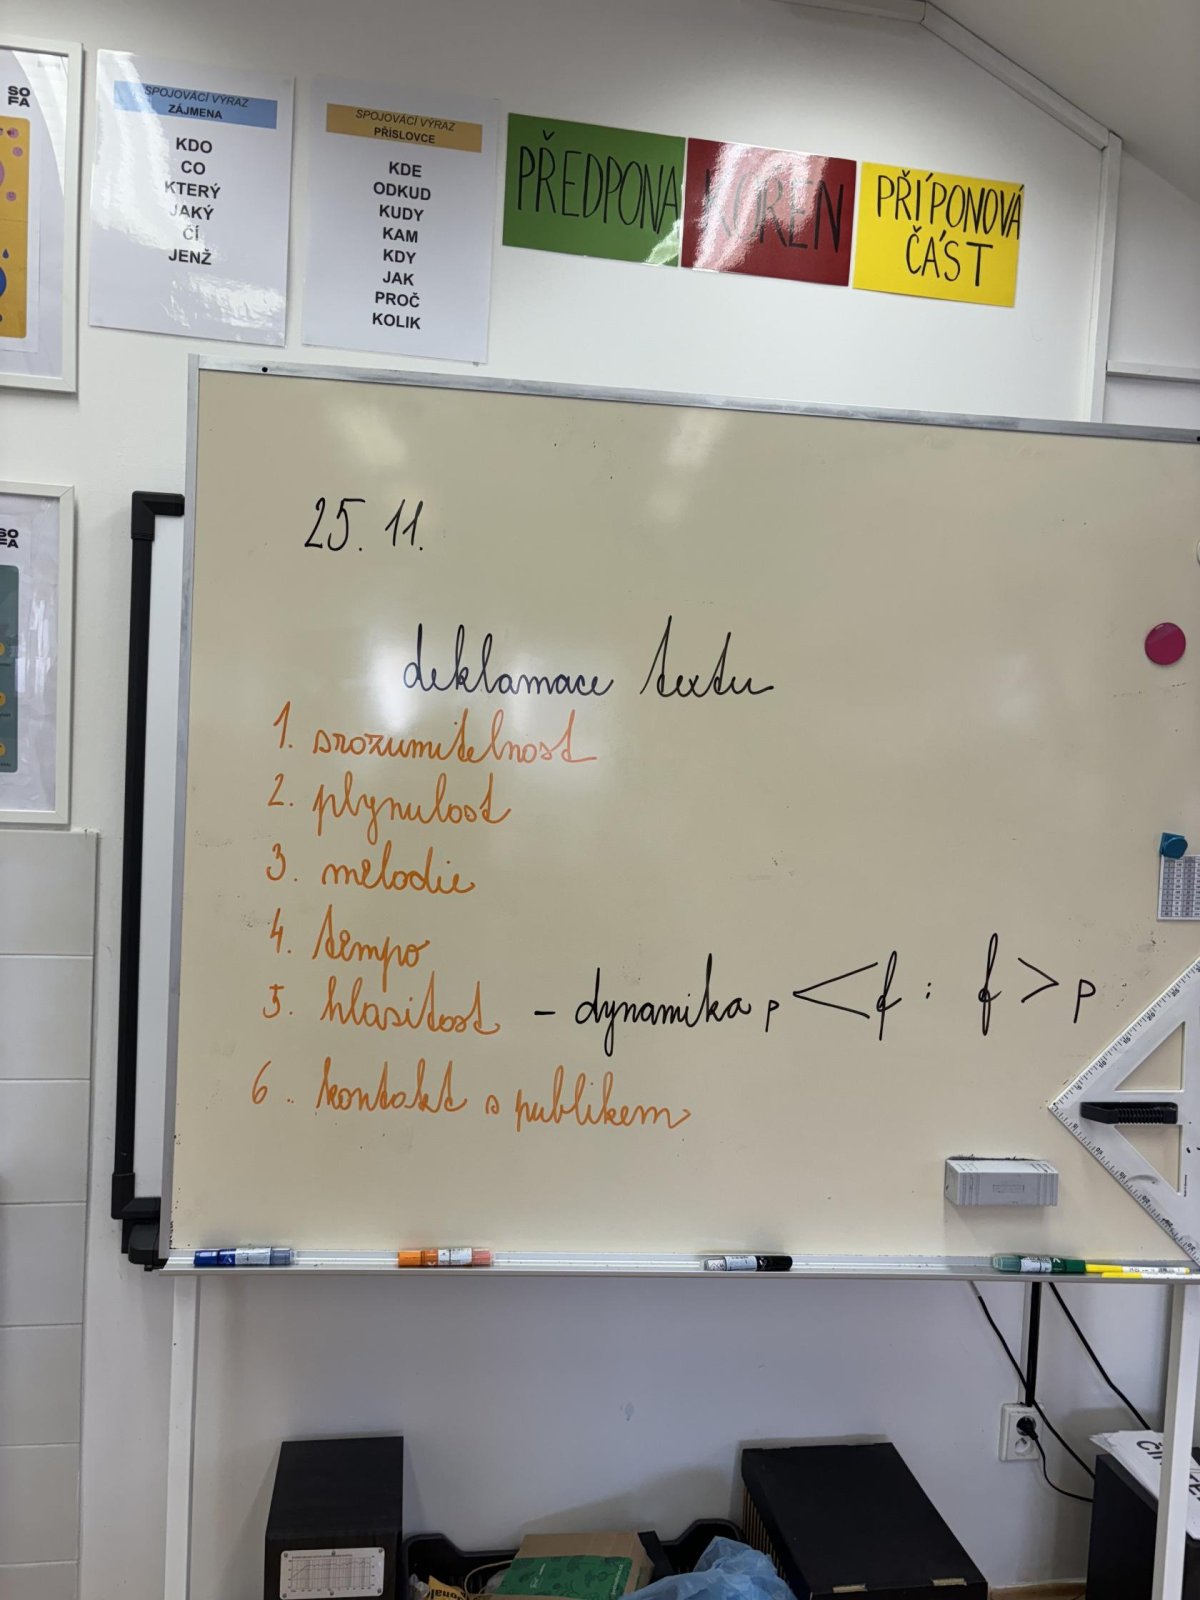 SO
FA
SPOJOVACÍ VÝRAZ
ZÁJMENA
KDO
CO
KTERÝ
JAKÝ
ČÍ
JENŽ
SPOJOVACÍ VÝRAZ
PŘÍSLOVCE
KDE
ODKUD
KUDY
KAM
KDY
JAK
PROČ
KOLIK
PŘEDPONA
KOŘEN
PŘÍPONOVÁ
ČÁST
SO
FA
25. 11.
deklamace textu
1. srozumitelnost
2. plynulost
3. melodie
4. tempo
5. hlasitost - dynamika p < f : f > p
6. kontakt s publikem